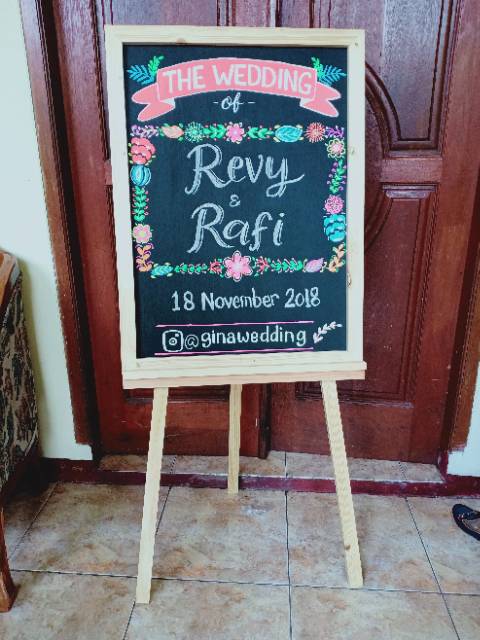 THE WEDDING
- of -
Revy
&
Rafi
18 November 2018
@ginawedding